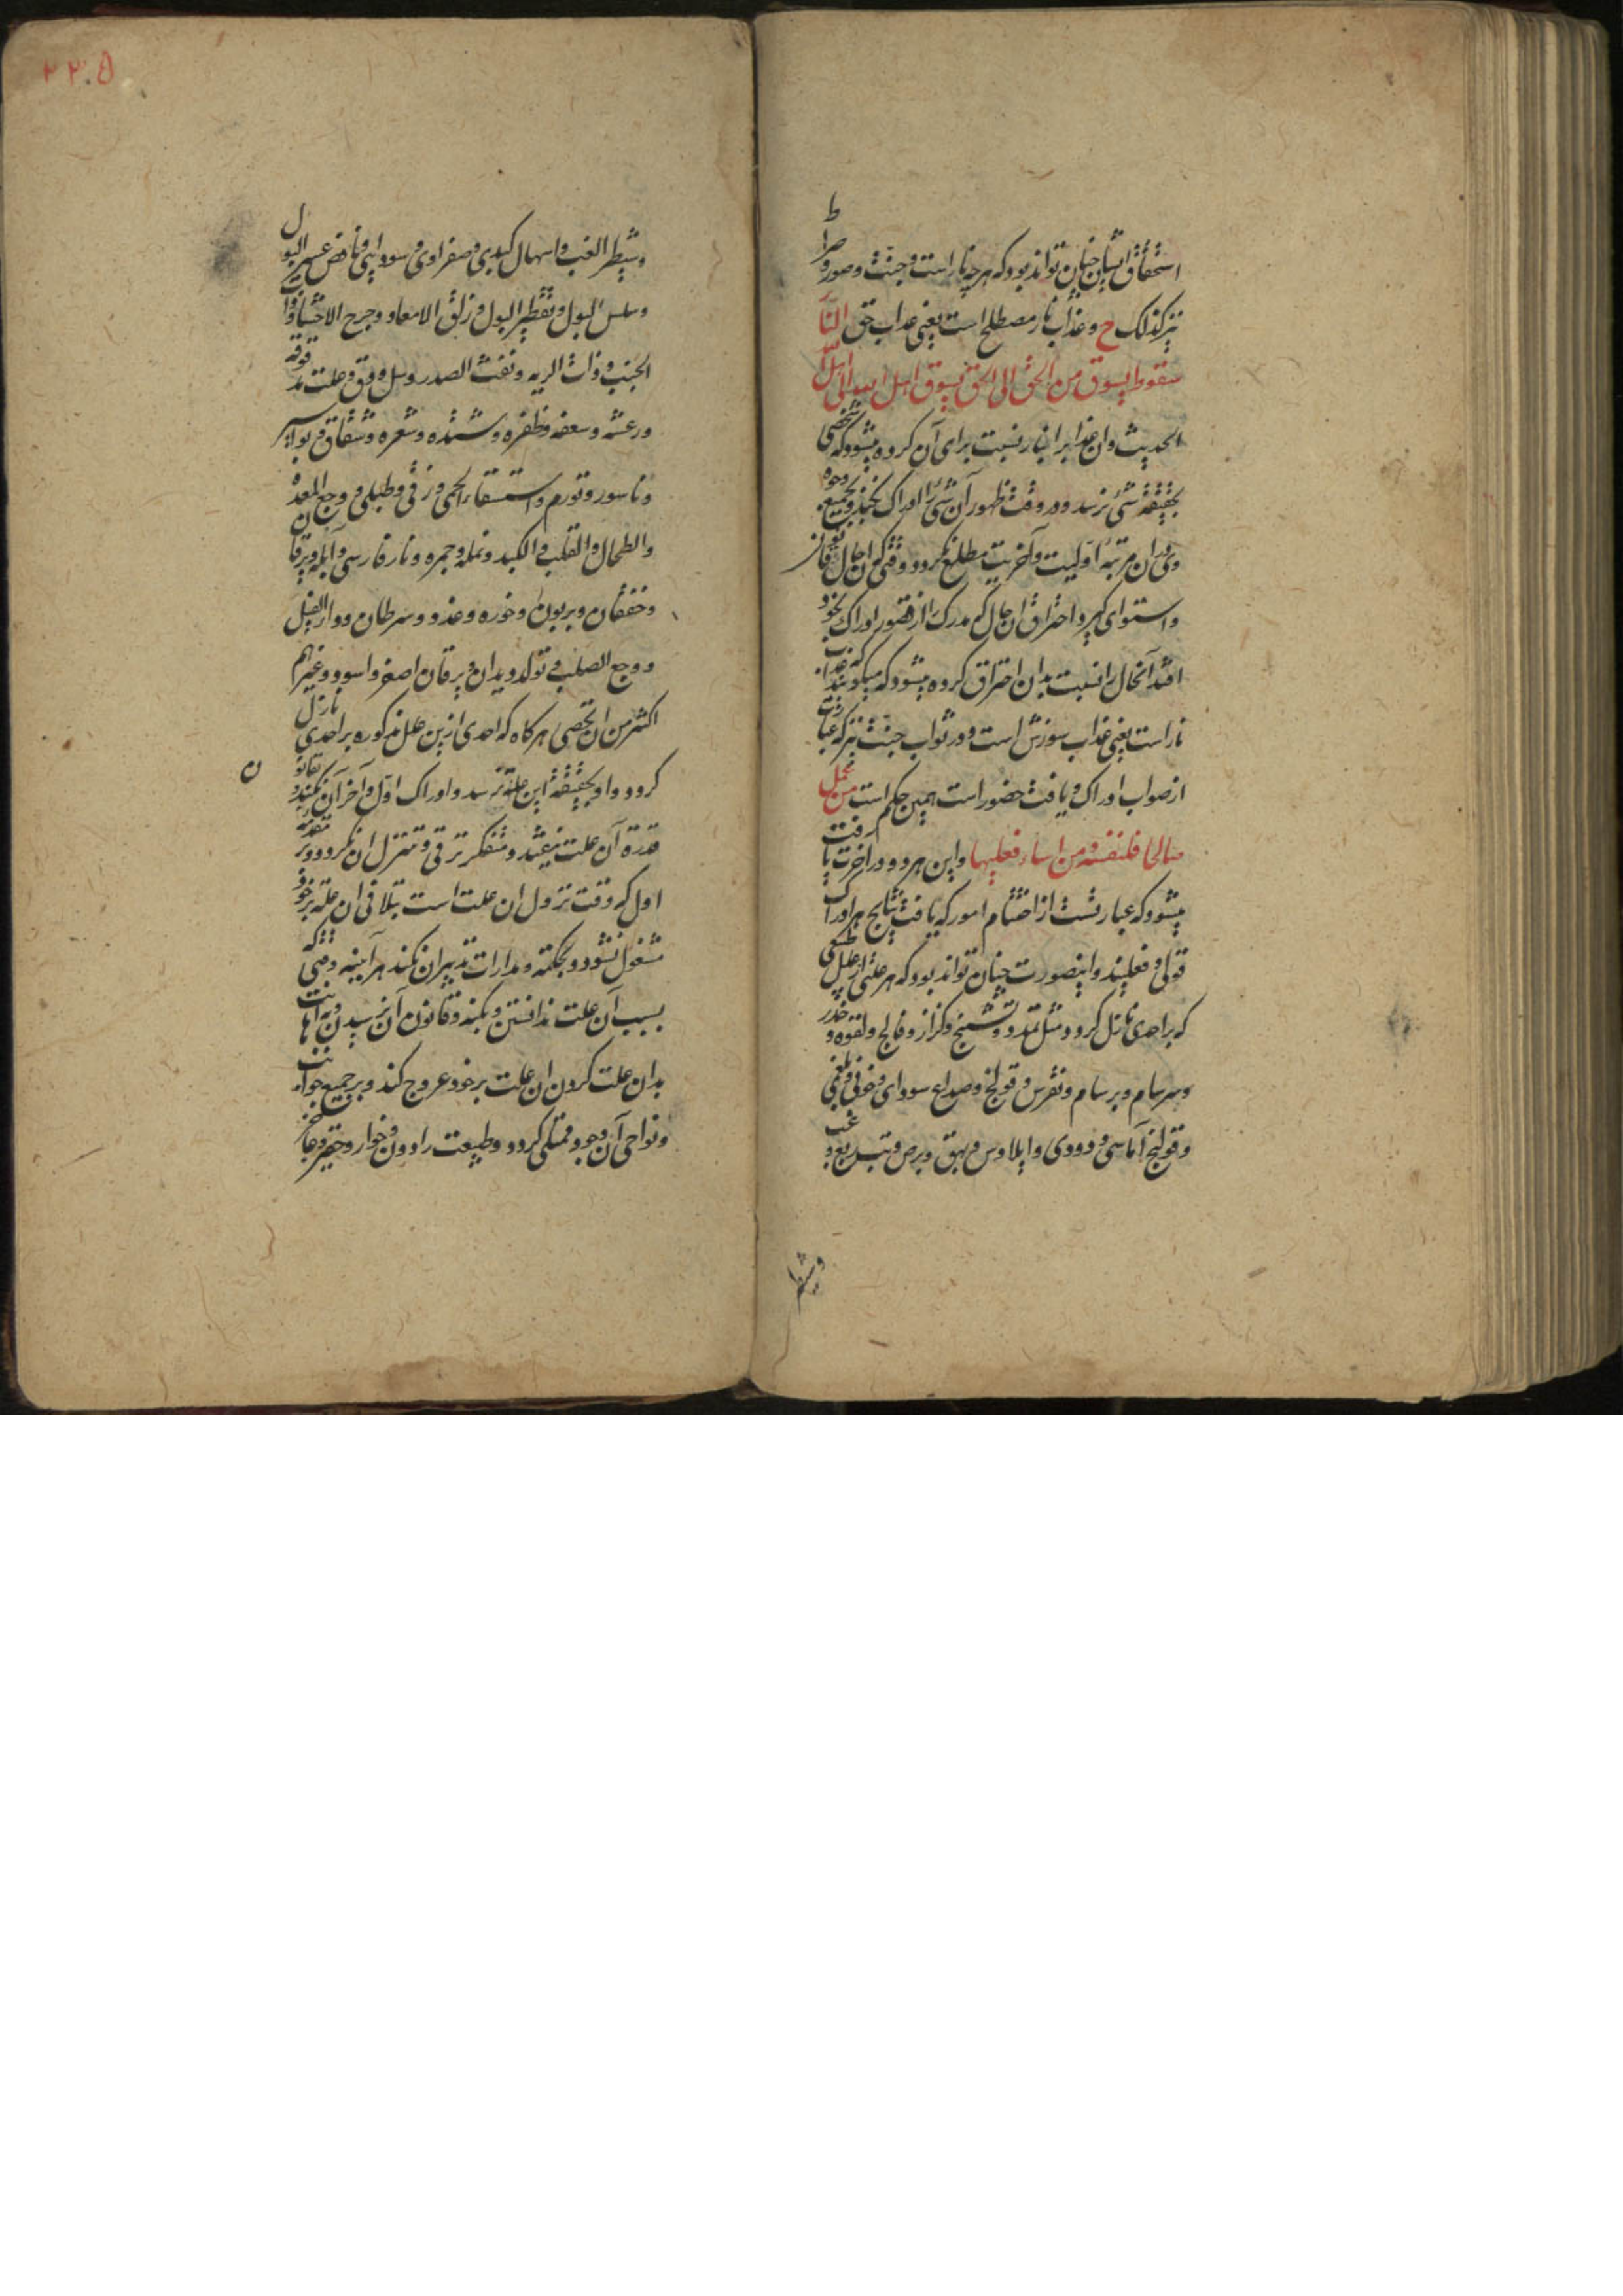 استحقاق ایشان چنان تواند بود که هر چه نار است و جنت و صور و صراط
نیز کذلک ح و عذاب نار مصطلح است یعنی عذاب حق النار
سقوط یسوق من الحق الی الحق یسوق اهل الله الی الله
الحدیث و ان عذاب را بنار نسبت برای آن کرده میشود که شخصی
بحقیقة شئ نرسد و در وقت ظهور آن شئ را ادراک نکند و بجمیع وجوه
وی در ان مرتبهٔ اولیت و آخریت مطلع نکردد وقتی که ان حال
و استوای کیرد احتراق ان حال که مدرک را از قصور ادراک بخود
افتد آنحال را نسبت بدان احتراق کرده میشود که میکویند عذاب
نار است یعنی عذاب سوزش است و در ثواب جنت نیز که عبارت
از صواب ادراک و یافت حضور است همین حکم است من عمل
صالحا فلنفسه و من اساء فعلیها و این هر دو در آخرت یافت
میشود که عبارتست از اختتام امور که یافت نتایج هر ادراک
قولی و فعلیند و اینصورت چنان تواند بود که هر علتی از علل طبعی
که بر احدی نازل کردد مثل تمدد و تشنج و کزاز و فالج و لقوه و خدر
و سرسام و برسام و نقرس و قولنج و صداع سودای و خونی و بلغمی
و قولنج آماسی و دودی و ایلاوس و بهق و برص و تب ربع و غب
وشطر
۲۲۰۵
و شطر الغب و اسهال کبدی و صفراوی و سودایی و نافض عسر البول
و سلس البول و تقطیر البول و زلق الامعا و جرح الاحشا و ذات
الجنب و ذات الریه و نفث الصدر و سل و دق و علت
و رعشه و سعفه و ظفره و و شعره و شقاق و بواسیر
و ناسور و تورم و استسقاء لحمی و زقی و طبلی و وجع المعده
و الطحال و القلب و الکبد و نمله و جمره و نار فارسی و آبله و یرقان
و خفقان و و خوره و غدد و سرطان و داء الفیل
و وجع الصلب و تولد دیدان و یرقان اصفر و اسود و غیرهم
اکثر من ان تحصی هر کاه که احدی ازین علل مذکوره بر احدی نازل
کردد و او بحقیقة این علة نرسد و ادراک اول و آخر آن نکند و بقانون
قدرة آن علت نیفتد و متفکر ترقی و تنزل ان نکردد و در مقدمه
اول که وقت نزول ان علت است بتلافی ان علة بر خود
مشغول نشود و بحکمة و مدارات تدبیر ان نکند هر آینه وقتی که
بسبب آن علت ندانستن و بکنه و قانون آن نرسیدن و اهانت
بدان علت کردن ان علت بر خود عروج کند و بر جمیع جوانب
و نواحی آن وجود متمکی کردد و طبیعت را دون و خوار و حقیر و